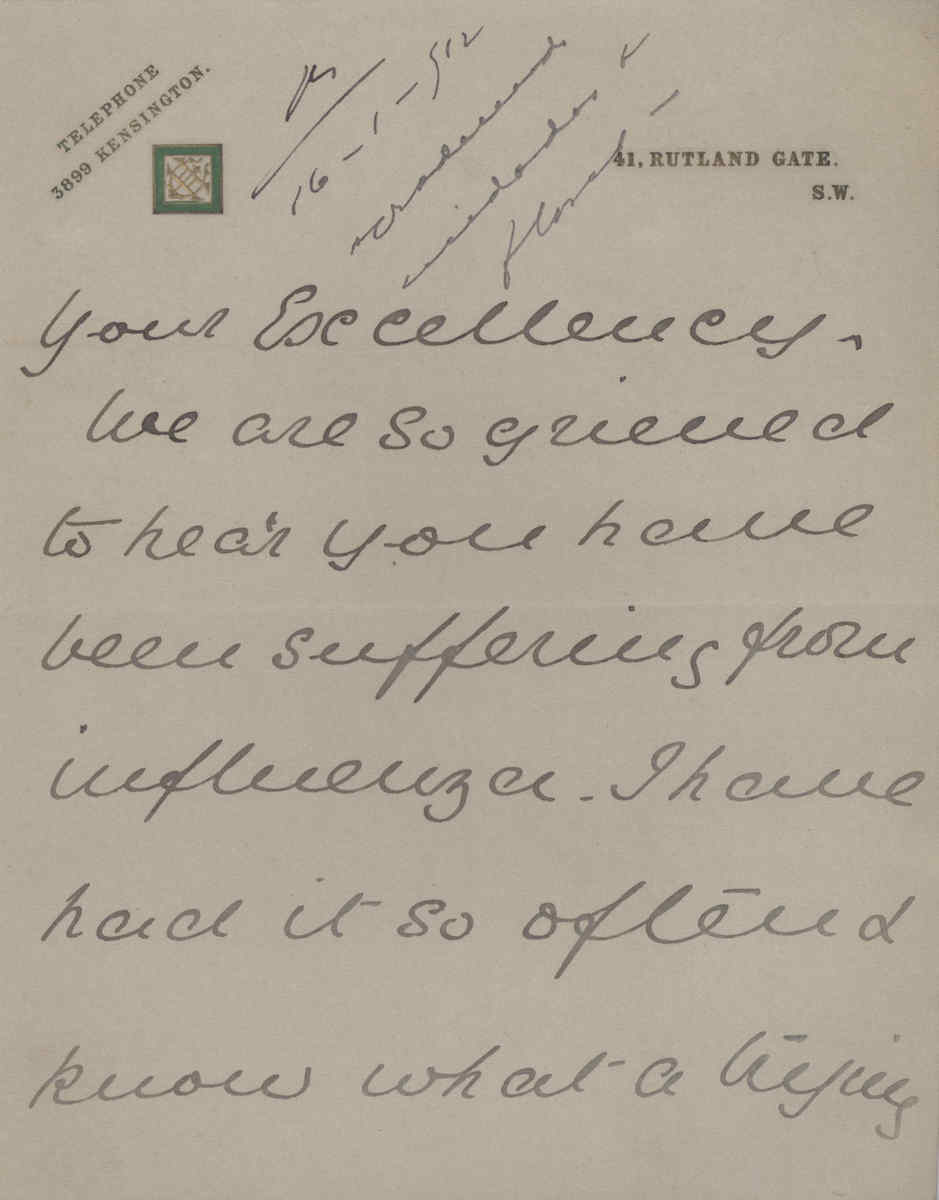 TELEPHONE
3899 KENSINGTON.
16-1-912
41, RUTLAND GATE.
S.W.
Your Excellency -
We are so grieved
to hear you have
been suffering from
influenza. I have
had it so often &
know what a trying